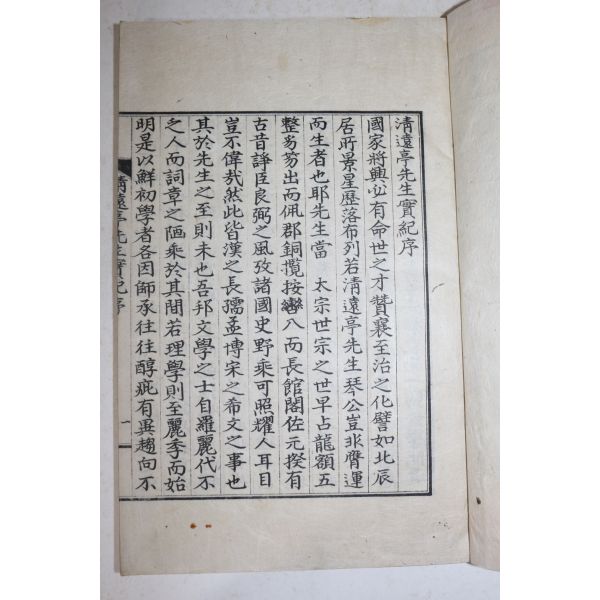 清遠亭先生實紀序
國家將興必有命世之才贊襄至治之化譬如北辰
居所景星歷落布列若清遠亭先生琴公豈非膺運
而生者也耶先生當 太宗世宗之世早占龍額五
整豸笏出而佩郡銅攬按轡入而長館閣佐元揆有
古昔諍臣良弼之風攷諸國史野乘可照耀人耳目
豈不偉哉然此皆漢之長孺孟博宋之希文之事也
其於先生之至則未也吾邦文學之士自羅麗代不
之人而詞章之陋乘於其間若理學則至麗季而始
明是以鮮初學者各因師承往往醇疵有異趨向不
清遠亭先生實紀序 一